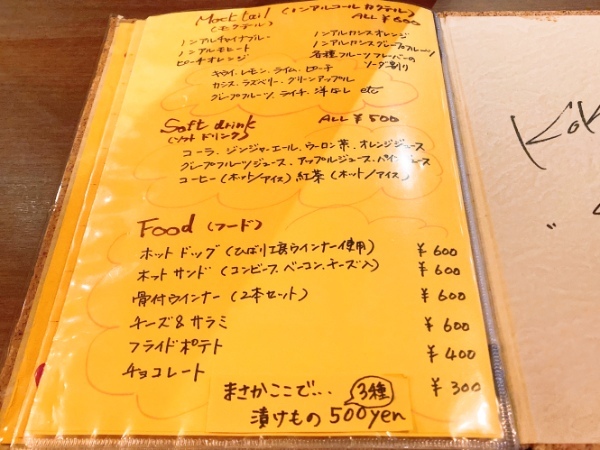 Mocktail (ノンアルコールカクテル) ALL ¥600
(モクテル)
ノンアルチャイナブルー
ノンアルカシスオレンジ
ノンアルモヒート
ノンアルカシスグレープフルーツ
ピーチオレンジ
各種フルーツフレーバーの
ソーダ割り
キウイ、レモン、ライム、ピーチ
カシス、ラズベリー、グリーンアップル
グレープフルーツ、ライチ、洋なし etc
Soft drink ALL ¥500
(ソフトドリンク)
コーラ、ジンジャーエール、ウーロン茶、オレンジジュース
グレープフルーツジュース、アップルジュース、パインジュース
コーヒー(ホット/アイス) 紅茶 (ホット/アイス)
Food (フード)
ホットドッグ (ひばり工房ウインナー使用) ¥600
ホットサンド (コンビーフ、ベーコン、チーズ入) ¥600
骨付ウインナー (2本セット) ¥600
チーズ&サラミ ¥600
フライドポテト ¥400
チョコレート ¥300
まさかここで… 3種
漬けもの 500yen